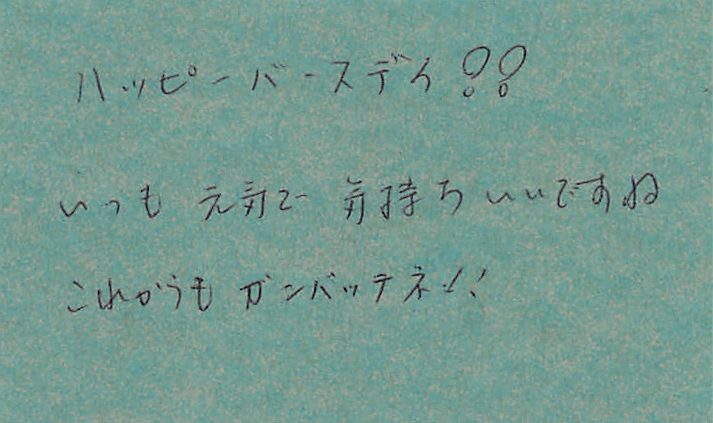 ハッピーバースデイ!!
いつも 元気で 気持ちいいですね
これからも ガンバッテネ!!